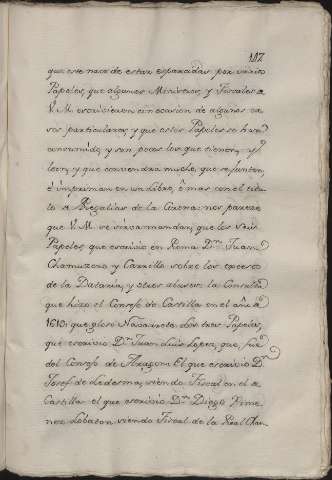 107
que este nace de estar esparcidas por varios
Papeles, que algunos Ministros, y Fiscales a
V. M. escrivieron en ocasion de algunos ca
sos particulares, y que estos Papeles se han
consumido, y son pocos los que tienen, y
leen, y que convendra mucho, que se junten,
e impriman en un Libro, ò mas con el titu
lo à Regalias de la Corona: nos parece
que V. M. se sirva mandar, que los seis
Papeles que escrivio en Roma Dn. Juan
Chumazero, y Carrillo sobre los excesos
de la Dataria, y otros abusos: la Consulta
que hizo el Consejo de Castilla en el año de
1619: que glosò Navarrete. Los tres Papeles,
que escrivio Dn. Juan Luis Lopez, que fue
del Consejo de Aragon: El que escrivio Dn.
Josef de Ledesma, siendo Fiscal en el de
Castilla: el que escrivio Dn. Diego Xime
nez Lobaton, siendo Fiscal de la Real Chan